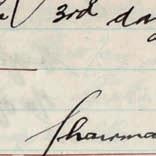 3rd day
Chairma